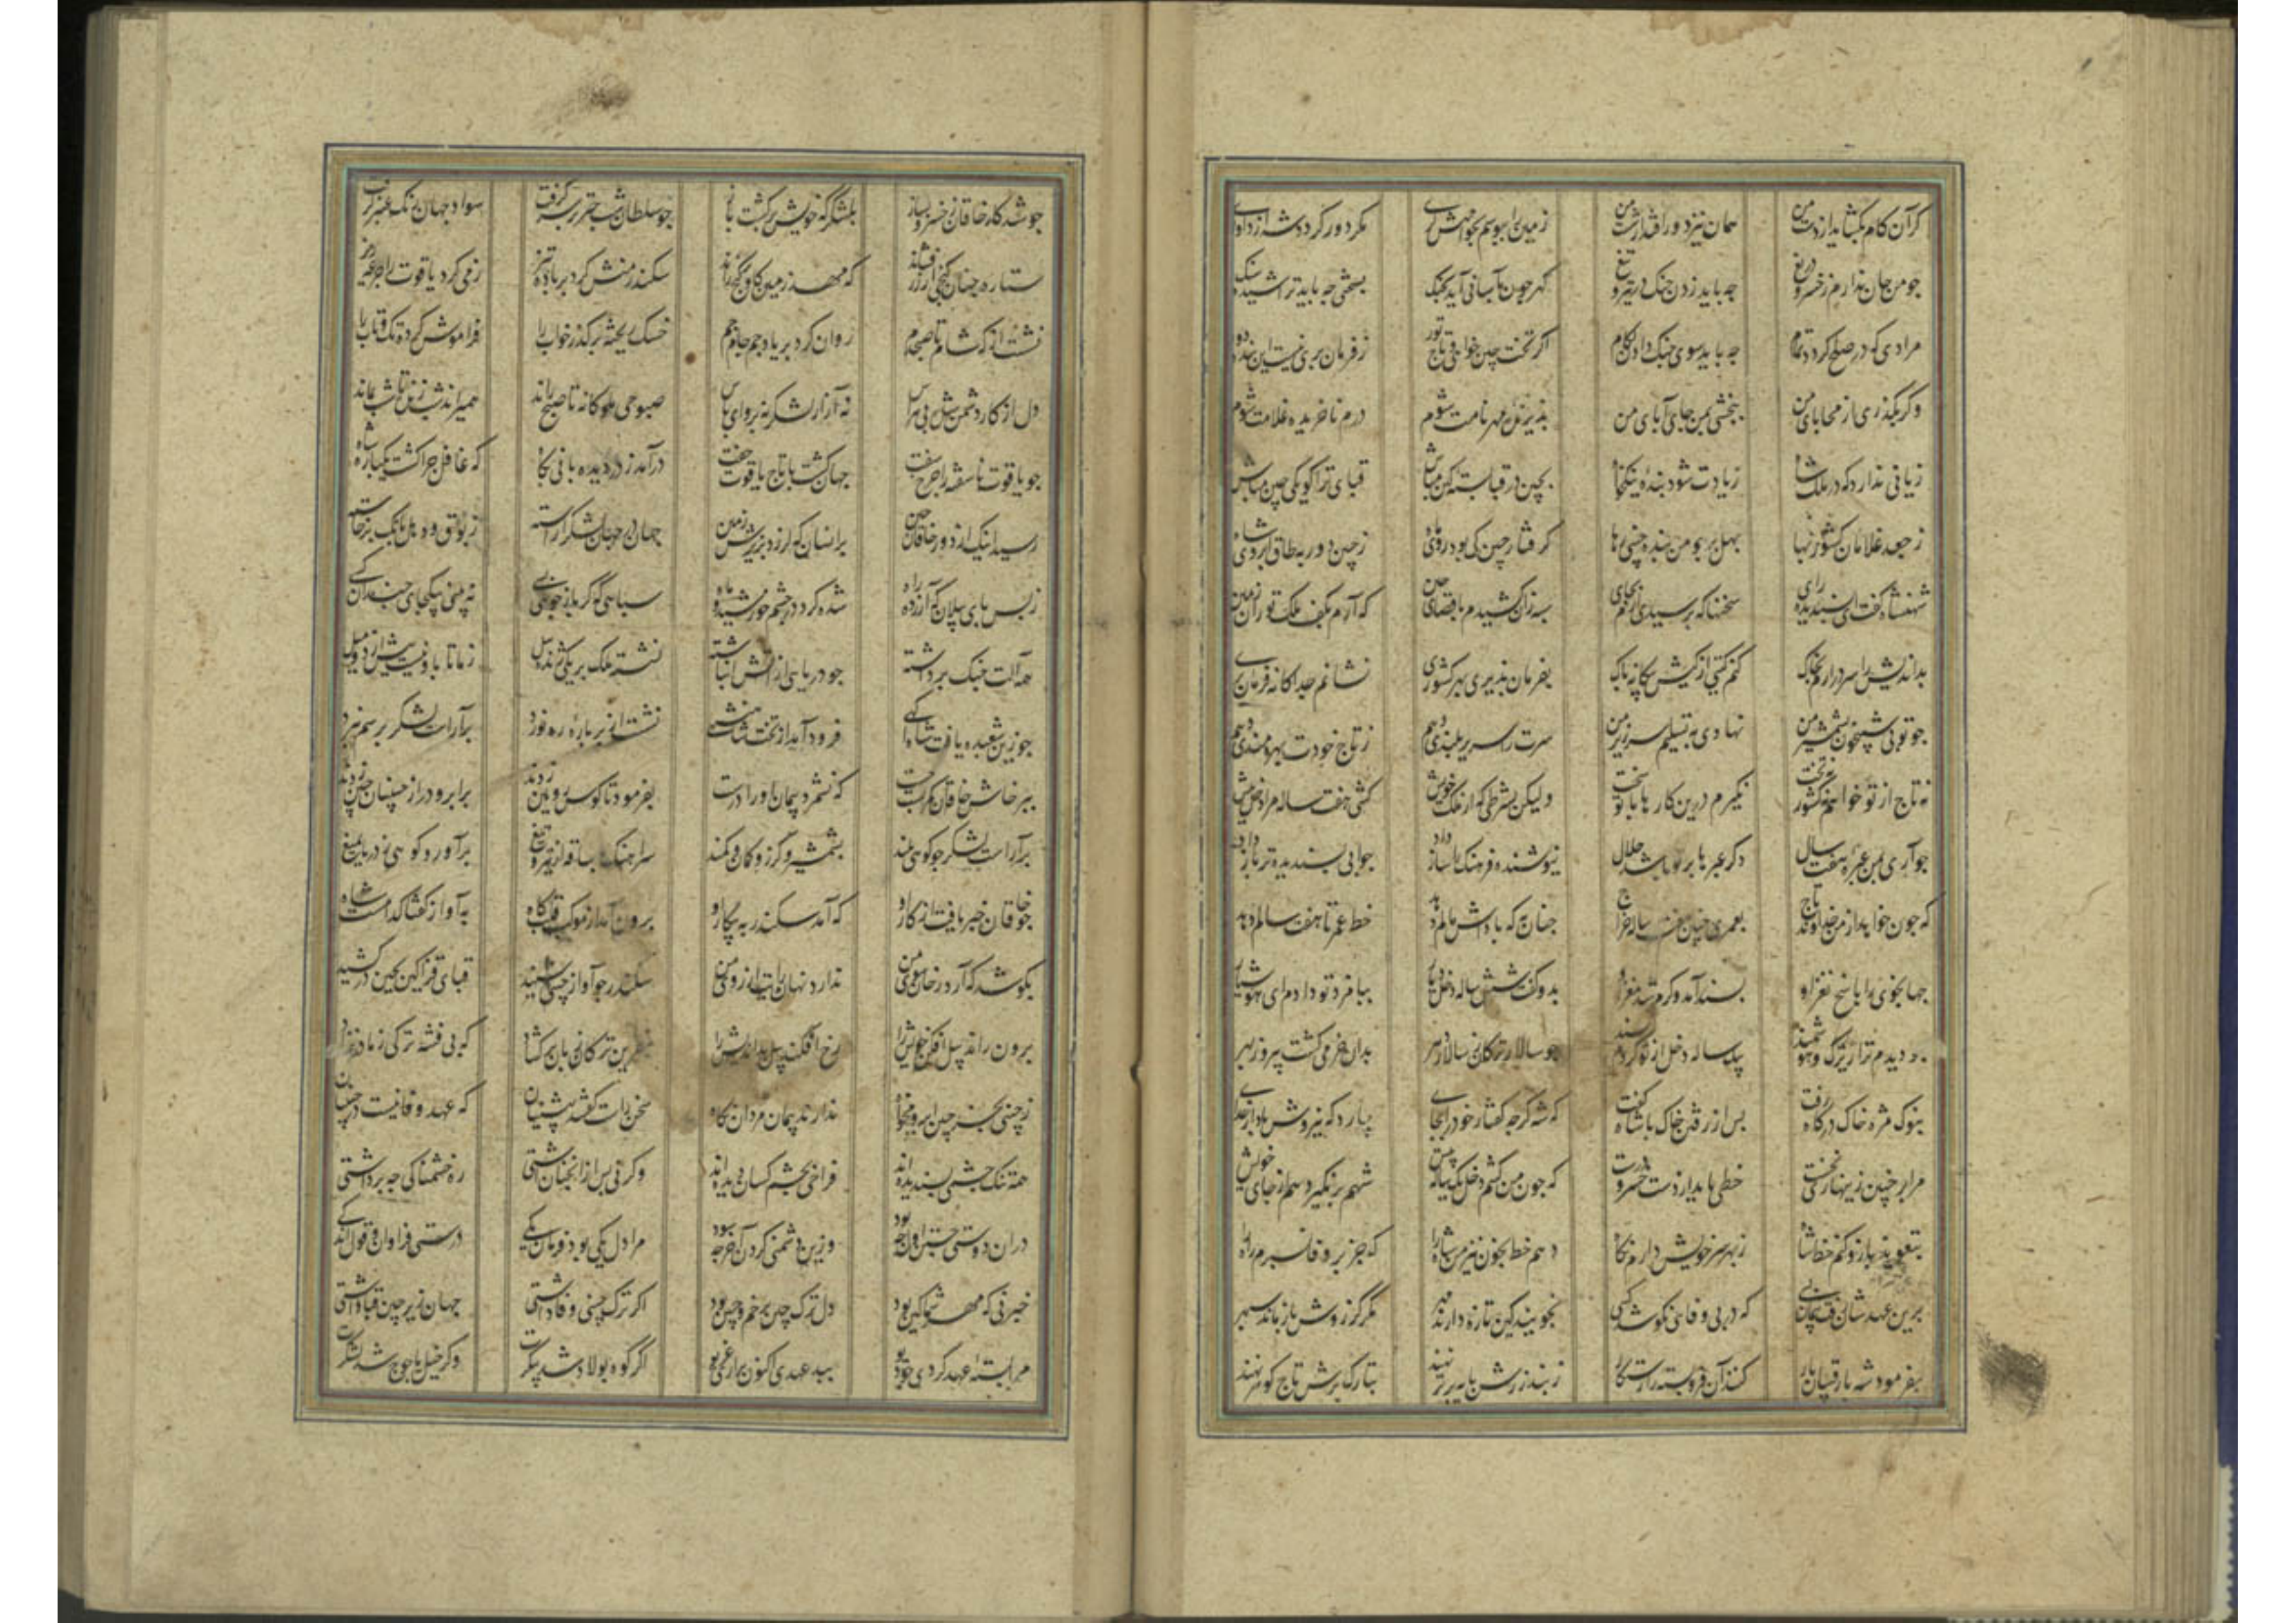 گر آن کام بگشاید از دست من همان نیزه دور افتد از شست من زمین را ببوسم بخواهش مگر دور گردد شه از داوری
چو من جان ندارم ز خسرو دریغ چه باید زدن چنگ در تیر و تیغ گهر چون بآسانی آید بچنگ بسختی چه باید تراشید سنگ
مرادی که در صلح گردد تمام چه باید سوی جنگ دادن لگام اگر تخت چین خواهی و تاج تور ز فرمان بری نیست این بنده دور
وگر بگذری از محابای من ببخشی بمن جای آبای من پذیرندهٔ مهر نامت شوم درم ناخریده غلامت شوم
زیانی ندارد که در ملک شاه زیادت شود بندهٔ نیکخواه بچین در قبا بسته کین مباش قبای ترا گو یکی چین مباش
ز جعد غلامان کشور بها بهل بر چو من بنده چینی رها گرفتار چین کی بود روی ماه ز چین دور به طاق ابروی شاه
شهنشاه گفت ای پسندیده رای سخنها که پرسیدی آرم بجای سپه زان کشیدم باقصای چین که آرم بکف ملک توران زمین
بداندیش را سر درآرم بخاک کنم گیتی از کیش بیگانه پاک بفرمان پذیری بهر کشوری نشانم جداگانه فرمان بری
چو تو بی شبیخون شمشیر من نهادی به تسلیم سر زیر من سرت را سریر بلندی دهم ز تاج خودت بهره مندی دهم
نه تاج از تو خواهم نه کشور نه تخت نگیرم درین کار ها با تو سخت ولیکن بشرطی که از ملک خویش کشی هفت ساله مرا دخل پیش
چو آری بمن عبرهٔ هفت سال دگر عبرها بر تو باشد حلال نیوشنده فرهنگ را ساز داد جوابی پسندیده تر باز داد
که چون خواهد از من خداوند تاج بعمری چنین هفت ساله خراج چنان به که پاداش مالم دهد خط عمر تا هفت سالم دهد
جهانجوی را پاسخ نغز او پسند آمد و گرم شد مغز او بدو گفت شش ساله دخل دیار بپا مزد تو دادم ای هوشیار
چو دیدم ترا زیرک و هوشمند یک ساله دخل از تو کردم پسند چو سالار ترکان ز سالار دهر بدان خرمی گشت پیروز بهر
بنوک مژه خاک درگاه رفت پس از رفتن خاک با شاه گفت که شه گرچه گفتار خود را بجای بیارد که نیروش باد از خدای
مرا بر چنین زینهار نخست خطی باید از دست خسرو درست که چون من کشم دخل یکساله پیش شهم بر نگیرد هم از جای خویش
بتعویذ بازو کنم خط شاه ز بهر سر خویش دارم نگاه دهم خط بخون نیز من شاه را که جز بر وفا نسپرم راه را
برین عهد شان رفت پیمان بسی که در بی وفائی نکوشد کسی نجویند کین تازه دارند مهر مگر کز روش باز ماند سپهر
بفرمود شه با رقیبان بار کنند آن فرو بسته را رستگار ز بند زرش پایه برتر نهند بتارک برش تاج گوهر نهند
چو شد کار خاقان ز خسرو بساز بلشکرگه خویش برگشت باز چو سلطان شب چتر بر سر گرفت سواد جهان رنگ عنبر گرفت
ستاره چنان گنجی از زر فشاند که مهد زمین گاو بر گنج راند سکندر منش کرد بر باده تیز ز می کرد یاقوت را جرعه ریز
نشست از گه شام تا صبحدم روان کرد بر یاد جم جام جم خسک ریخته بر گذر خواب را فراموش کرده تک و تاب را
دل از کار دشمن شده بی هراس نه آزار لشکر نه پروای پاس صبوحی ملوکانه تا صبح راند همی راند شب زین تا شب نماند
چو یاقوت ناسفته را چرخ سفت جهان گشت با تاج یاقوت جفت درآمد ز در دیده بانی پگاه که غافل چرا گشت یکباره شاه
رسید اینک از دور خاقان چین بر انسان که لرزد بزیرش زمین جهان در جهان لشکر آراسته ز بوق و دهل بانگ برخاسته
ز بس پای پیلان که آزرد راه شده گرد در چشم خورشید و ماه سپاهی که گر باز جوید بسی نه بینی بیکجای چندان کسی
همه آلت جنگ برداشته چو دریایی از آتش انباشته نشسته ملک بر یکی ژنده پیل ز ما تا بدو نیست بیش از دو میل
چو زین شعبده یافت شاه آگهی فرود آمد از تخت شاهنشهی نشست از بر باره ره نورد برآراست لشکر برسم نبرد
بپرخاش خاقان کمر بست چست که نشمرد پیمان او را درست بفرمود تا کوس رویین زدند بر ابرو دراز چینیان چین زدند
برآراست لشکر چو کوهی بلند بشمشیر و گرز و کمان و کمند سراهنگ تا ساقه از تیر و تیغ برآورد کوهی ز دریا بمیغ
چو خاقان خبر یافت از کار او که آمد سکندر به پیکار او برون آمد از موکب قلبگاه به آواز گفتا کدامست شاه
بگوشد که آرد رخان سوی من ندارد نهان رایت از روی من سکندر چو آواز چینی شنید قبای قزاگین بچین درکشید
برون راند پیل افکن خویش را رخ افکند پیل بداندیش را بنفرین ترکان زبان برگشاد که بی فتنه ترکی ز مادر نزاد
ز چینی بجز چین ابرو مخواه ندارند پیمان مردان نگاه سخن راست گفتند پیشینیان که عهد و وفا نیست در چینیان
همه تنگ چشمی پسندیده اند فراخی بچشم کسان دیده اند وگر نی پس از آنچنان آشتی ره خشمناکی چه برداشتی
در آن دوستی جستن اول چه بود وزین دشمنی کردن آخر چه بود مرا دل یکی بود و پیمان یکی درستی فراوان و قول اندکی
خبر نی که مهر شما کین بود دل ترک چین پر خم و چین بود اگر ترک چینی وفا داشتی جهان زیر چین قبا داشتی
مرا بسته عهد کردی چو دیو ببد عهدی اکنون برآری غریو اگر کوه پولاد شد پیکرت وگر خیل یاجوج شد لشکرت